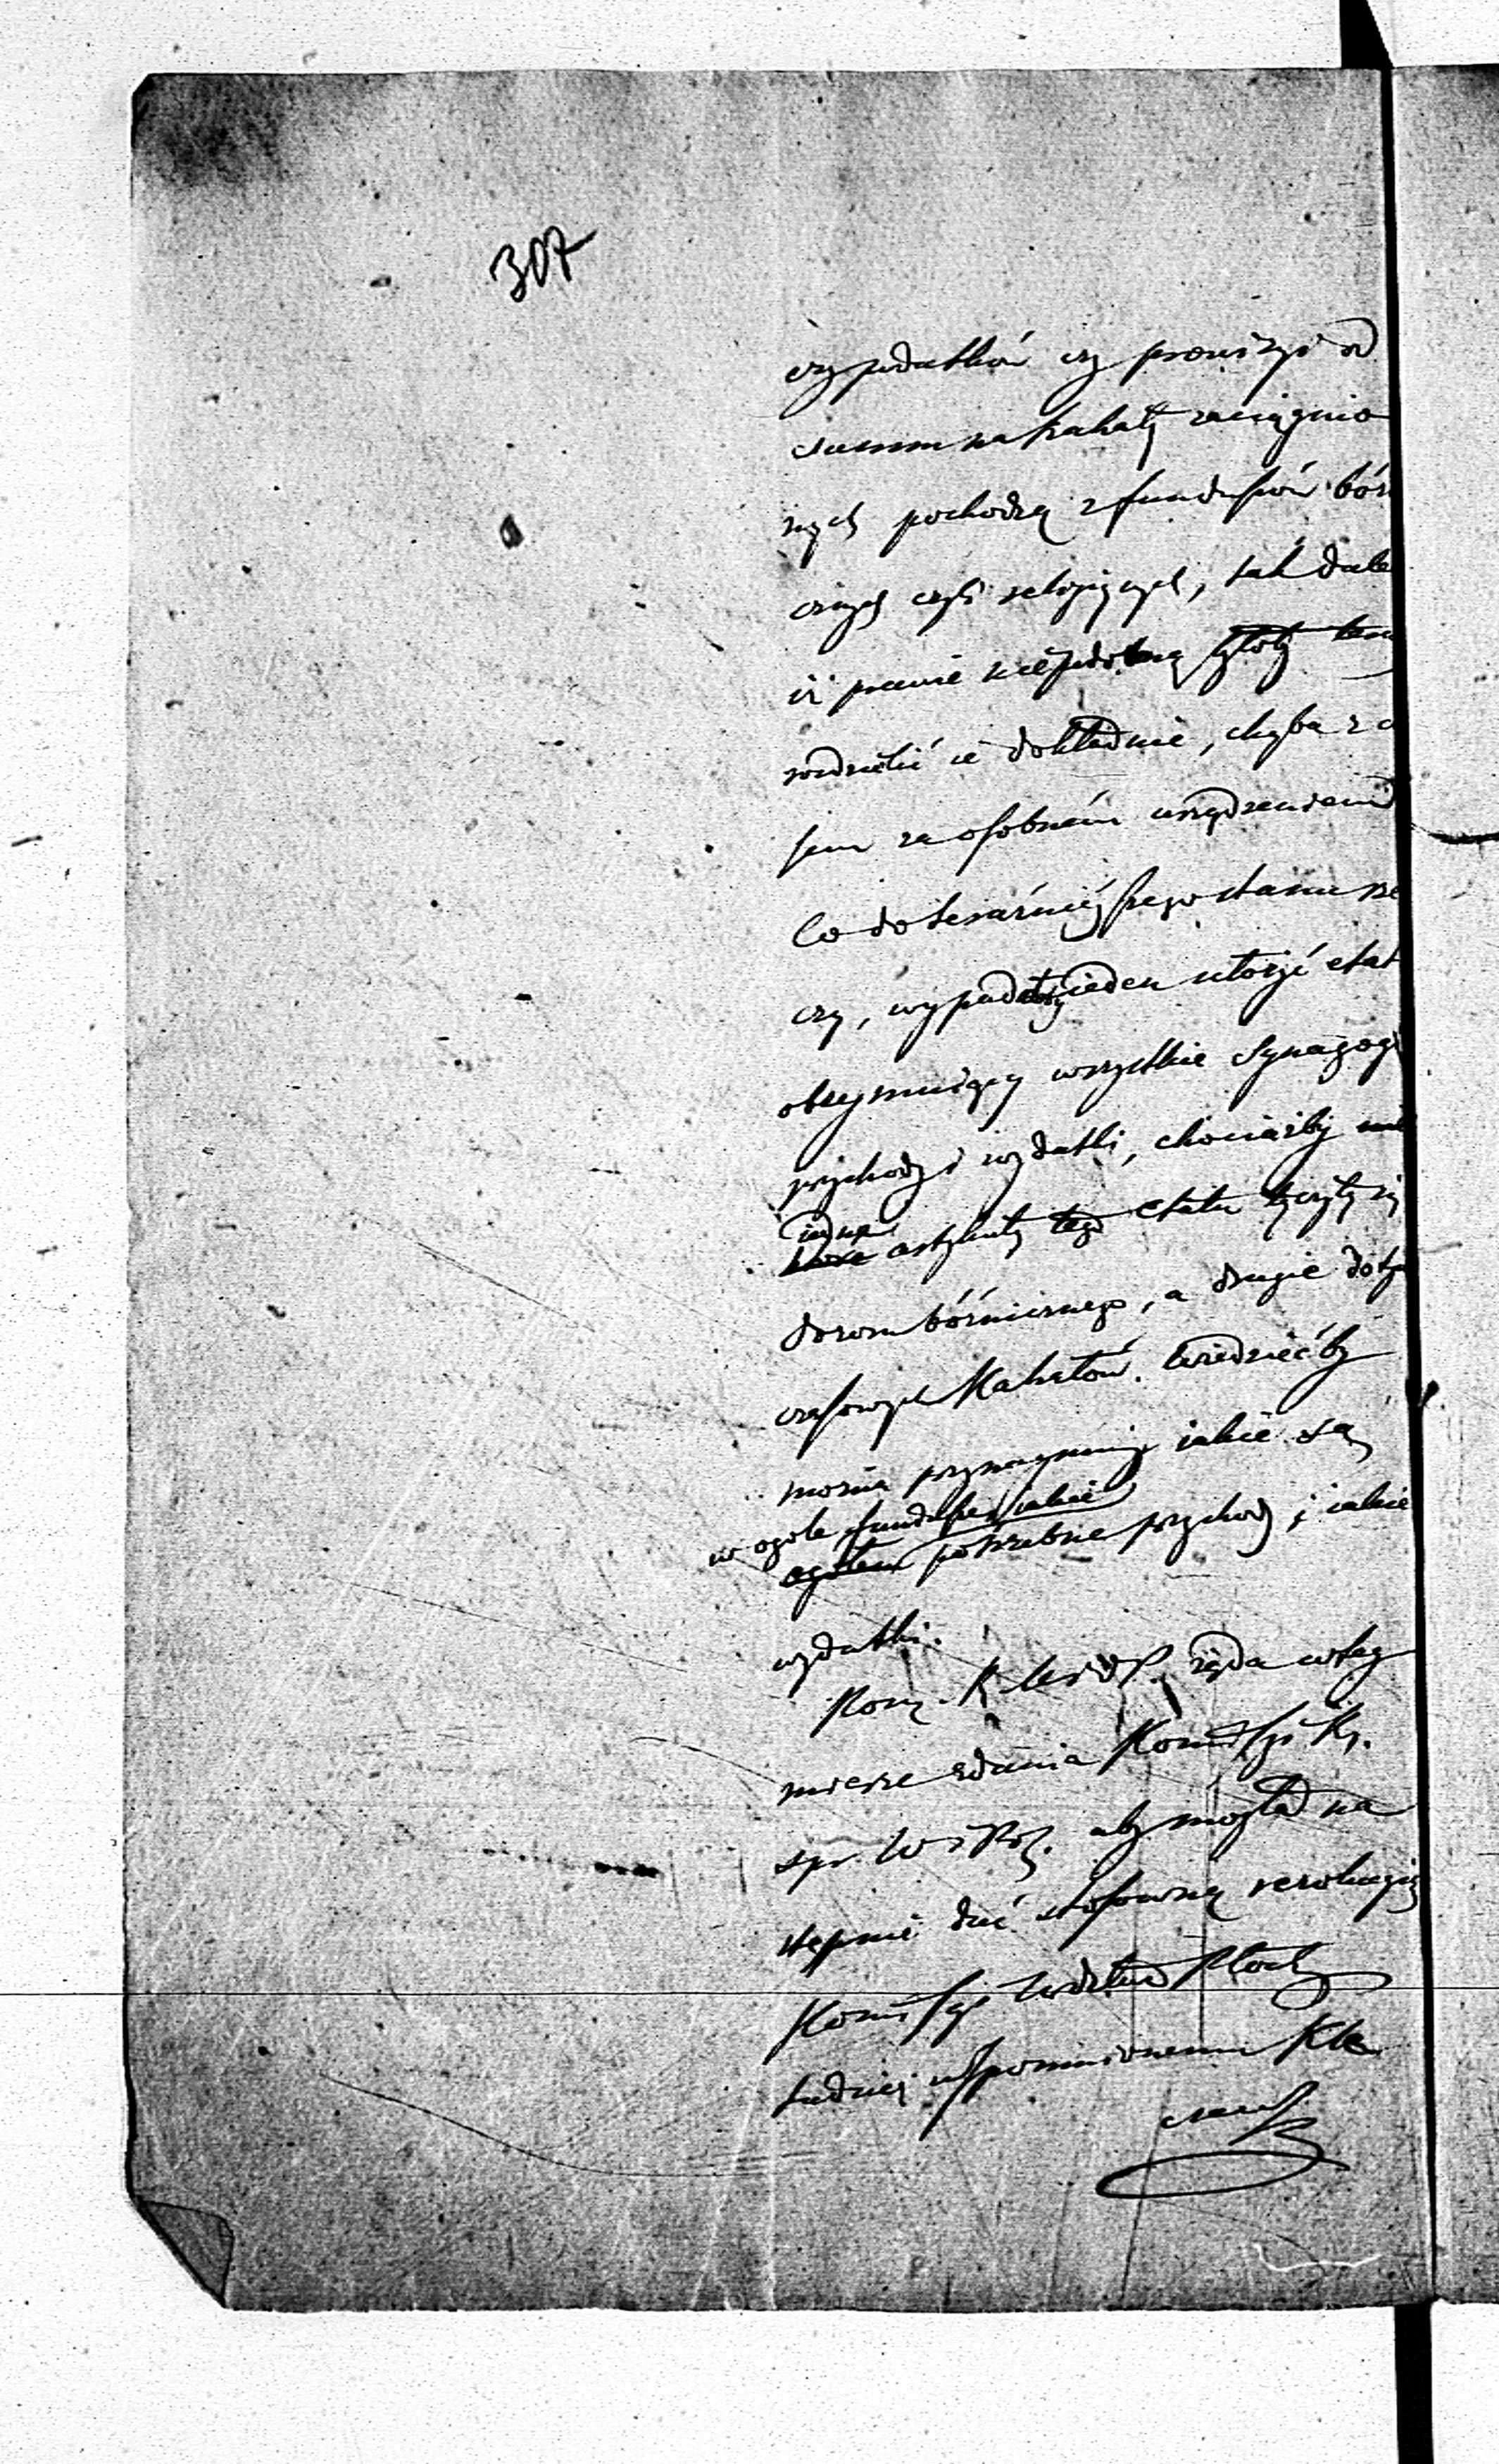 307
czy podatków czy prowizyi od
summ na kahały zaciągnio
nych pochodzą z funduszów bóż
czych czyli religijnych, tak dale
iż prawie niepodobną
rozdzielić ie dokładnie, chyba z c
sem za osobném urządzeniem
Co do teraźnieyszego stanu rze
czy, wypadałoby ieden ułożyć etat
obeymuiący wszystkie Synagogi
przychody i wydatki, chociażby
iedne artykuły tego etatu tyczyły się
dozoru bóżniczego, a drugie doty
czasowych Kahałów. Wiedzieć by
można przynaymniey iakie są
w ogóle fundusze, iakie
ogółem potrzebne przychody i iakie
wydatki.
Kom. R. żąda w tey
mierze zdania Kommissyi Rz.
spr. W. i Pol. aby mogła na
stępnie dać stosowną rezolucyią
Kommissyi Wdztwa Płock
tudzież wspomnionemu